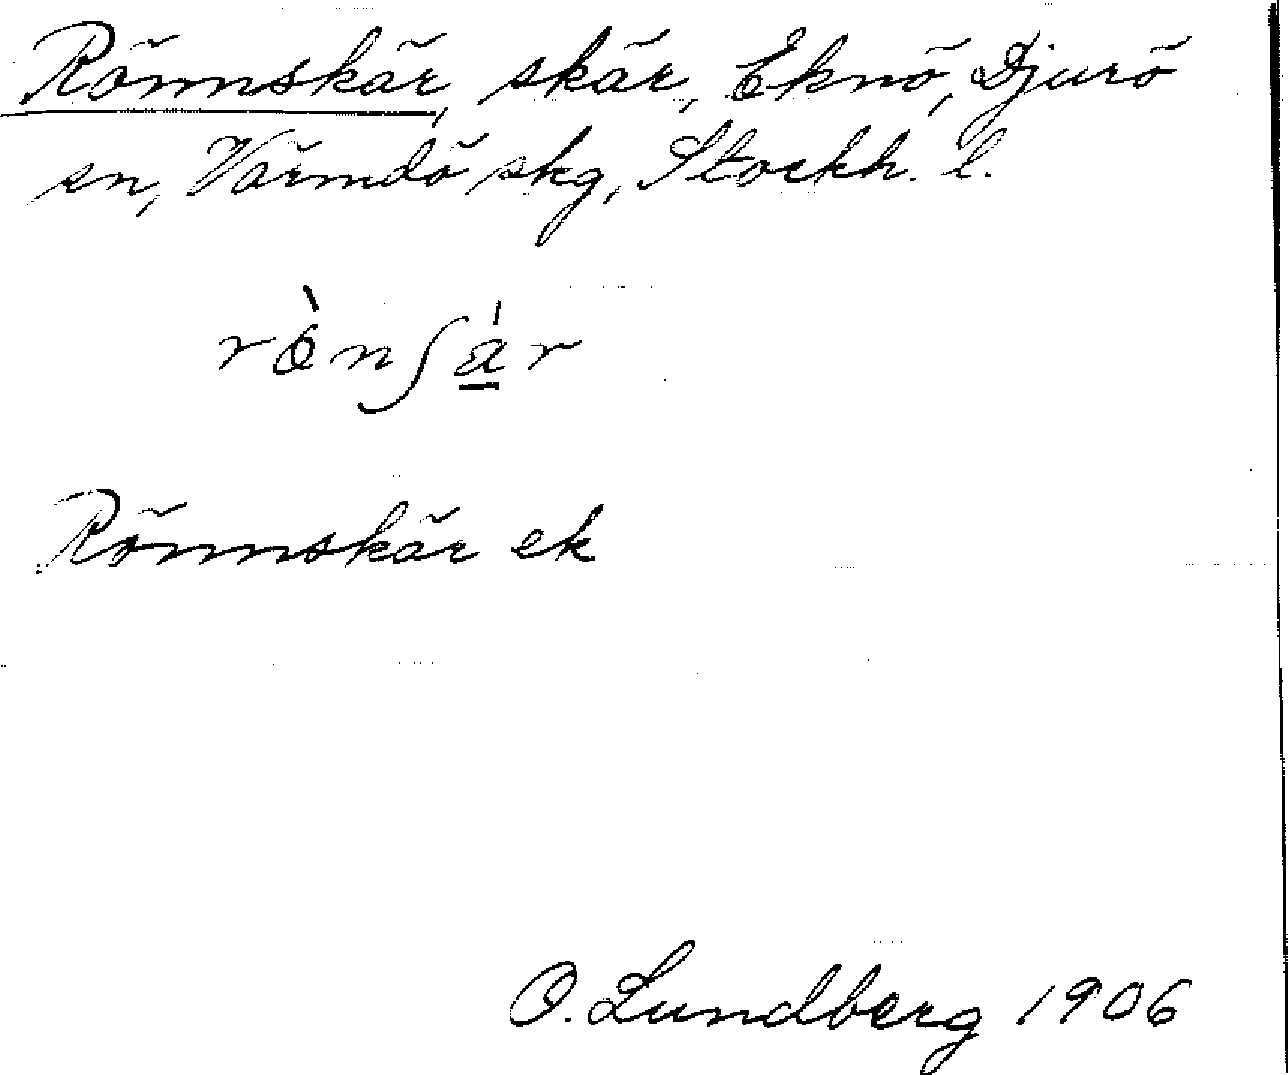 Rönnskär, skär, Eknö, Djurö
sn, Värmdö skg, Stockh. l.
rònʃä́r
Rönnskär ek
O. Lundberg 1906